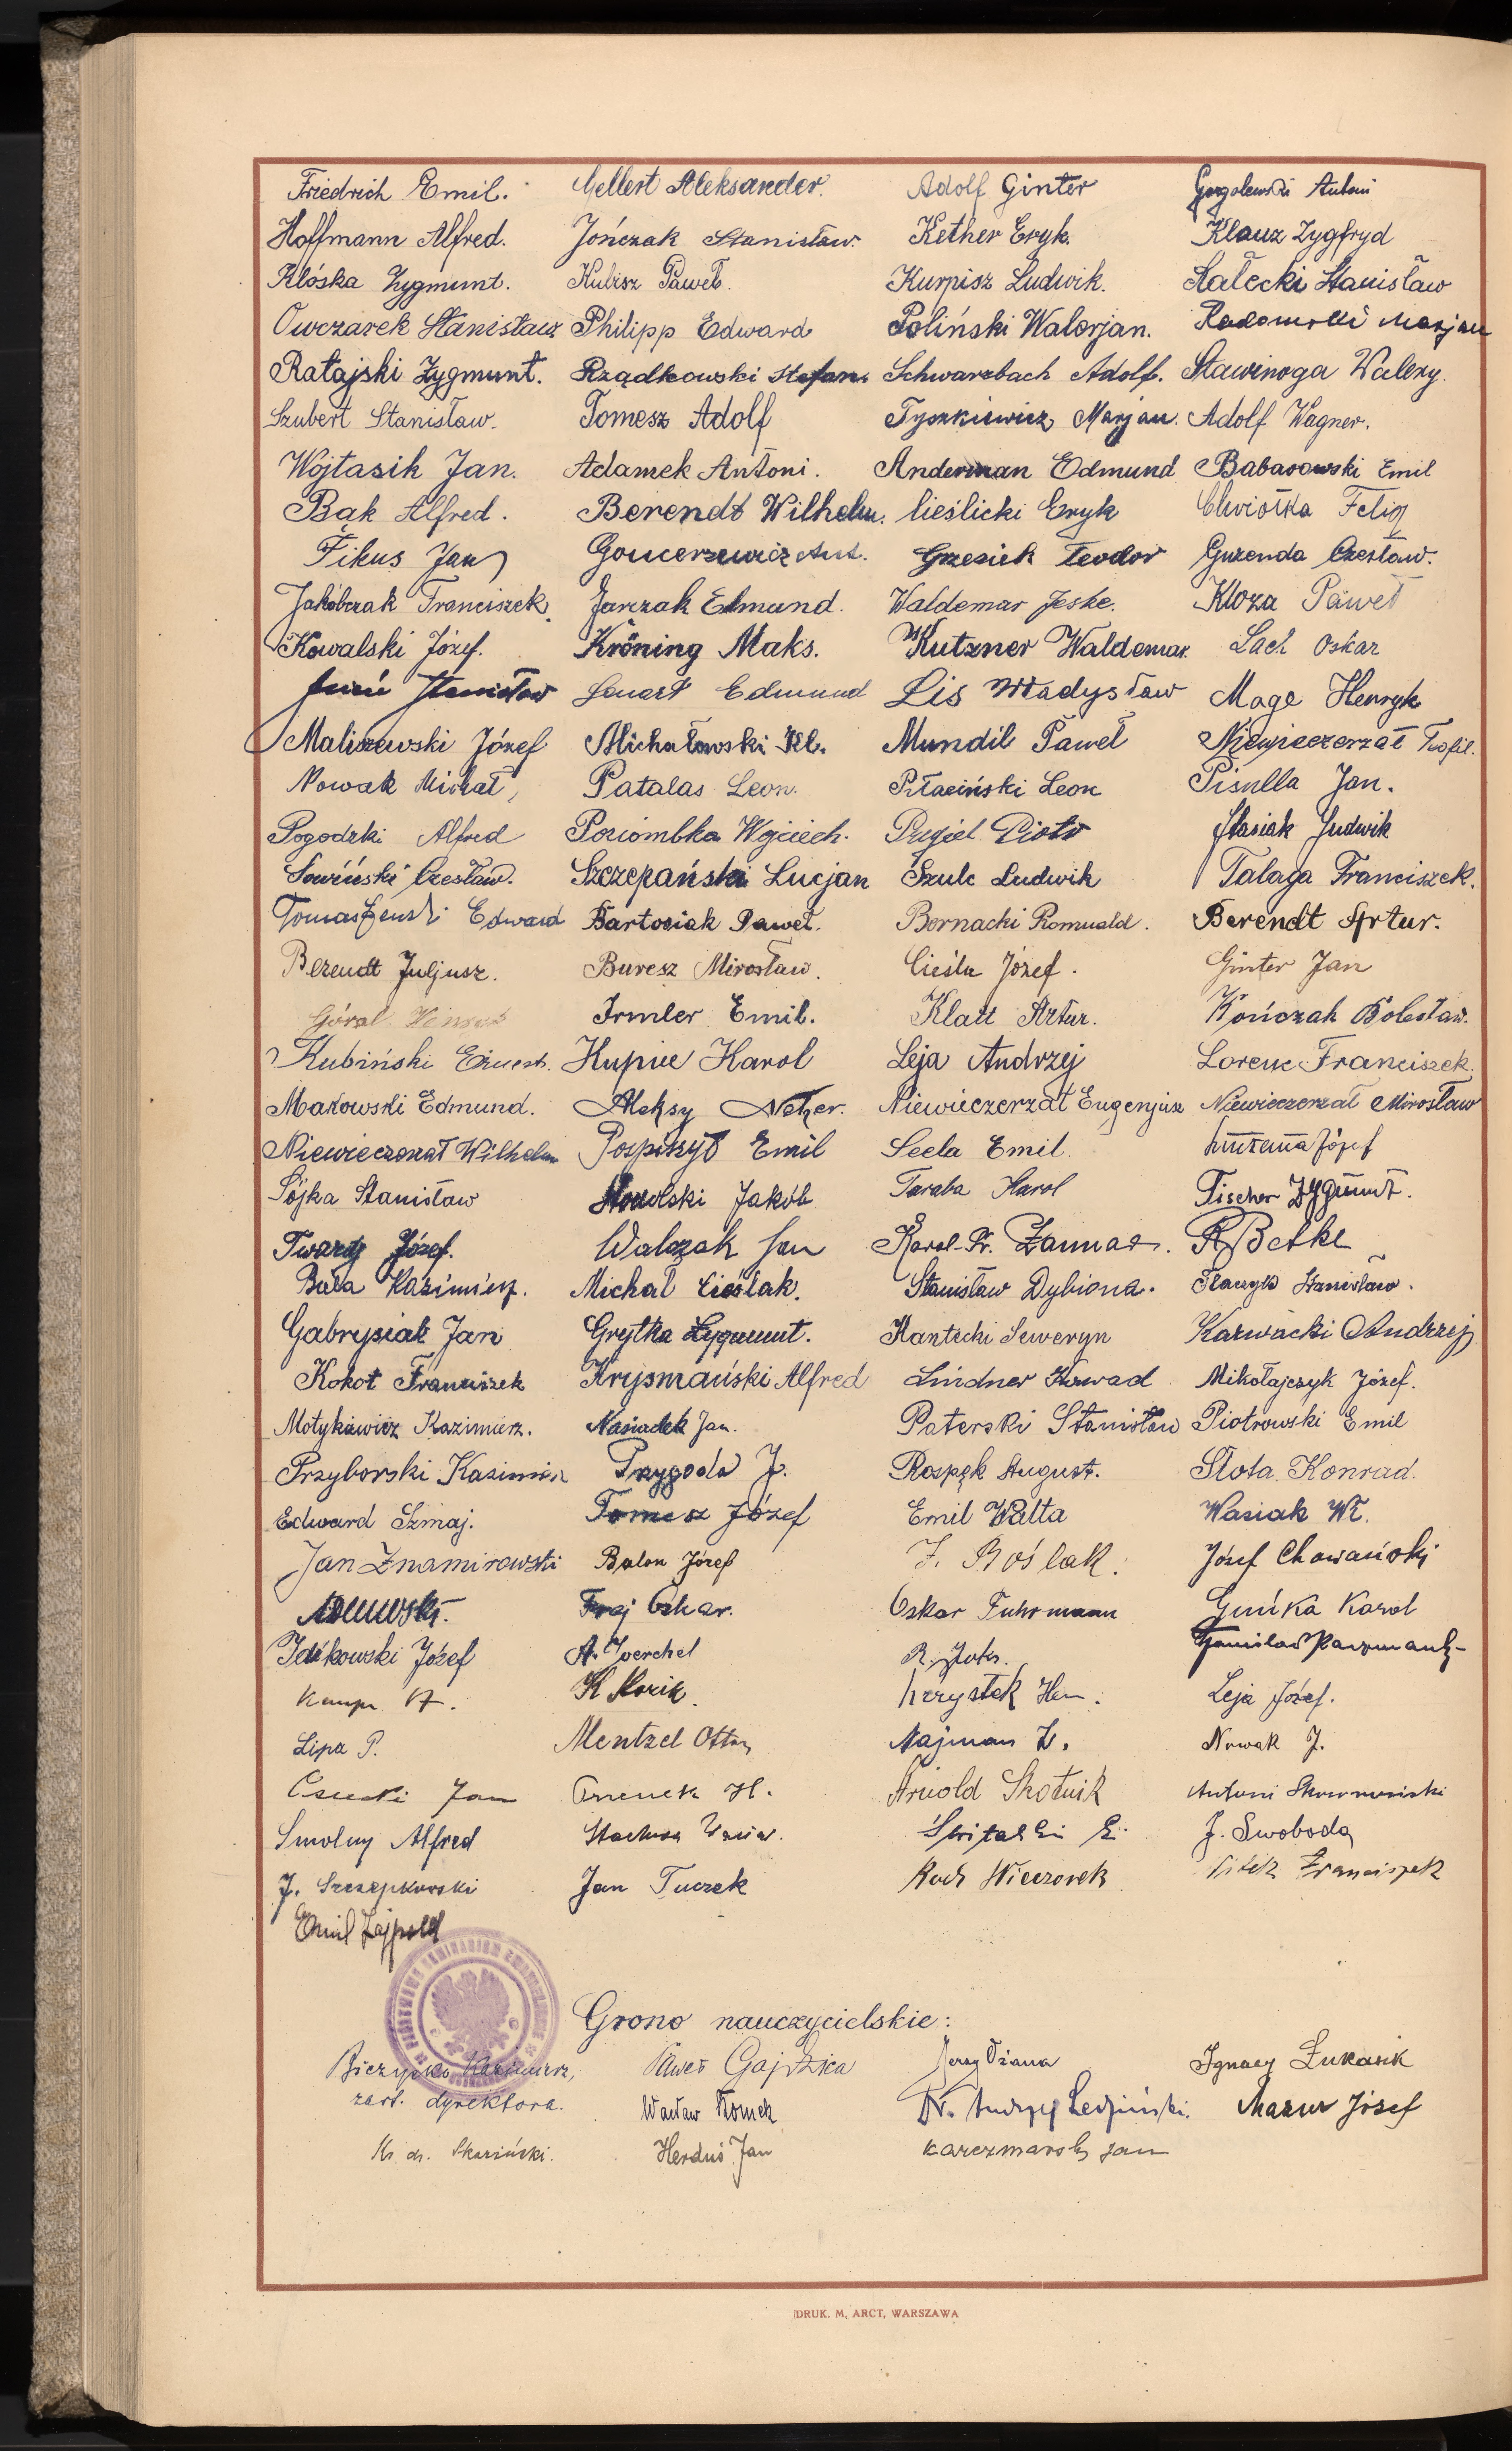 Friedrich Emil. Gellert Aleksander. Adolf Ginter Gorgolewski Antoni
Hoffmann Alfred. Jończak Stanisław. Kether Eryk. Klauz Zygfryd
Klóska Zygmunt. Kubisz Paweł. Kurpisz Ludwik. Sałecki Stanisław
Owczarek Stanisław Philipp Edward Poliński Walerjan. Radomski Marjan
Ratajski Zygmunt. Rządkowski Stefan. Schwarzbach Adolf. Stawinoga Walery.
Szubert Stanisław. Tomesz Adolf Tyszkiewicz Marjan. Adolf Wagner.
Wojtasik Jan. Adamek Antoni. Anderman Edmund Babarowski Emil
Bąk Alfred. Berendt Wilhelm. Cieślicki Eryk Chwiołka Felix
Fikus Jan Goncerzewicz Ant. Grzesiek Teodor Guzenda Czesław.
Jakóbczak Franciszek. Jarczak Edmund. Waldemar Jeske. Kloza Paweł
Kowalski Józef. Kröning Maks. Kutzner Waldemar. Lach Oskar
Stanisław Lenart Edmund Lis Władysław Mage Henryk
Maliszewski Józef Michałowski Kl. Mundil Paweł Niewieczerzał Teofil.
Nowak Michał, Patalas Leon. Piłaciński Leon Pisulla Jan.
Pogodzki Alfred Poziombka Wojciech. Piotr Stasiak Ludwik
Sowiński Czesław. Szczepański Lucjan Szulc Ludwik Talaga Franciszek.
Tomaszewski Edward Bartosiak Paweł. Bernacki Romuald. Berendt Artur.
Berendt Juljusz. Buresz Mirosław. Cieśla Józef. Ginter Jan
Góral Irmler Emil. Klatt Artur. Kończak Bolesław.
Kubiński Ernest. Kupiec Karol Leja Andrzej Lorenc Franciszek.
Makowski Edmund. Aleksy Neher. Niewieczerzał Eugenjusz Niewieczerzał Mirosław
Niewieczerzał Wilhelm Pospiszył Emil Seela Emil. Józef
Sójka Stanisław Jakób Taraba Karol Fischer Zygmunt.
Twardy Józef. Walczak Jan Karol-Fr. Zannar. R Betke
Buła Kazimierz. Michał Cieślak. Stanisław Dybiona. Stanisław.
Gabrysiak Jan Grytka Zygmunt. Kantecki Seweryn Karwacki Andrzej
Kokot Franciszek Krysmański Alfred Lindner Konrad Mikołajczyk Józef.
Motykiewicz Kazimierz. Nasiadek Jan. Paterski Stanisław Piotrowski Emil
Przyborski Kazimierz Przygoda J. Rospęk August. Słota Konrad.
Edward Szmaj. Tomesz Józef Emil Walta Wasiak Wł.
Jan Znamirowski Balon Józef J. Boślak. Józef Chowański
Fraj Oskar. Oskar Fuhrmann Guńka Karol
Idzikowski Józef A. Joerchel R.
K Korik. Krzystek Hen. Leja Józef.
Lipa P. Mentzel Otton Najman Z. Nowak J.
Jan H. Arnold Skotnik Antoni
Smolny Alfred E. J. Swoboda
J. Szczepkowski Jan Tuczek Roch Wieczorek Witek Franciszek
Emil Zajpold
Grono nauczycielskie:
Biezypko Kazimierz, Paweł Gajdzica Jerzy Oźana Ignacy Łukasik
zast. dyrektora. Wacław Romek Dr. Andrzej Mazur Józef
Ks. dr. Skaziński. Herduś Jan Karczmarski Jan
DRUK. M. ARCT, WARSZAWA